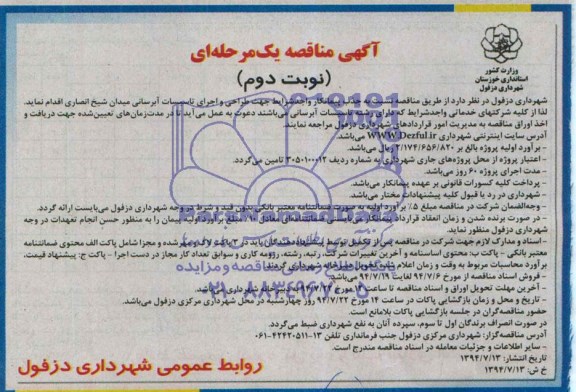 آگهی مناقصه یک مرحله‌ای
(نوبت دوم)
وزارت کشور
استانداری خوزستان
شهرداری دزفول
شهرداری دزفول در نظر دارد از طریق مناقصه نسبت به جذب پیمانکار واجد شرایط جهت طراحی و اجرای تاسیسات آبرسانی میدان شیخ انصاری اقدام نماید.
لذا از کلیه شرکتهای خدماتی واجد شرایط که دارای تاسیسات آبرسانی می‌باشند دعوت به عمل می‌آید تا در مدت زمان‌های تعیین‌شده جهت دریافت و
اخذ اوراق مناقصه به مدیریت امور قراردادهای شهرداری دزفول مراجعه نمایند.
آدرس سایت اینترنتی شهرداری WWW.Dezful.ir می‌باشد.
- برآورد اولیه پروژه بالغ بر ۲/۱۷۴/۶۵۶/۸۲۰ ریال می‌باشد.
- اعتبار پروژه از محل پروژه‌های جاری شهرداری به شماره ردیف ۳۰۵۰۱۰۰۰۱۲ تامین می‌گردد.
- مدت اجرای پروژه ۶۰ روز می‌باشد.
- پرداخت کلیه کسورات قانونی بر عهده پیمانکار می‌باشد.
- شهرداری در رد یا قبول کلیه پیشنهادات مختار می‌باشد.
- وجه‌الضمان شرکت در مناقصه مبلغ ۵٪ برآورد اولیه به صورت ضمانتنامه معتبر بانکی بدون قید و شرط در وجه شهرداری دزفول می‌بایست ارائه گردد.
- در صورت برنده شدن و زمان انعقاد قرارداد پیمانکار می‌بایستی ضمانتنامه‌ای معادل مبلغ برآورد اولیه پیمان را به منظور حسن انجام تعهدات در وجه
شهرداری منظور نماید.
- اسناد و مدارک لازم جهت شرکت در مناقصه پس از تکمیل توسط مناقصه‌گران باید در ۳ پاکت لاک و مهر شده و مجزا شامل پاکت الف محتوی ضمانتنامه
معتبر بانکی - پاکت ب: محتوی اساسنامه و آخرین تغییرات شرکت، رتبه، رشته، رزومه کاری و سوابق تعداد کار مجاز در دست اجرا - پاکت ج: پیشنهاد قیمت،
برآورد محاسبات مربوط به وقت و زمان اعلام شده تحویل دبیرخانه شهرداری گردد.
- فروش اسناد مناقصه از مورخ ۹۴/۷/۶ لغایت ۹۴/۷/۱۹ می‌باشد.
- آخرین مهلت تحویل اوراق و اسناد مناقصه تا ساعت دبیرخانه شهرداری می‌باشد.
- تاریخ و محل و زمان بازگشایی پاکات در ساعت ۱۴ مورخ ۹۴/۷/۲۲ روز چهارشنبه در محل شهرداری مرکزی دزفول می‌باشد.
حضور مناقصه‌گران در جلسه بازگشایی پاکات بلامانع است.
در صورت انصراف برندگان اول تا سوم، سپرده آنان به نفع شهرداری ضبط می‌گردد.
آدرس مناقصه‌گزار: شهرداری مرکزی دزفول جنب فرمانداری تلفن ۱۳-۴۲۴۲۰۵۱۱-۰۶۱
- سایر اطلاعات و جزئیات معامله در اسناد مناقصه مندرج است.
تاریخ انتشار: ۱۳۹۴/۷/۱۳
خ ش: ۱۳۹۴/۷/۱۳
روابط عمومی شهرداری دزفول